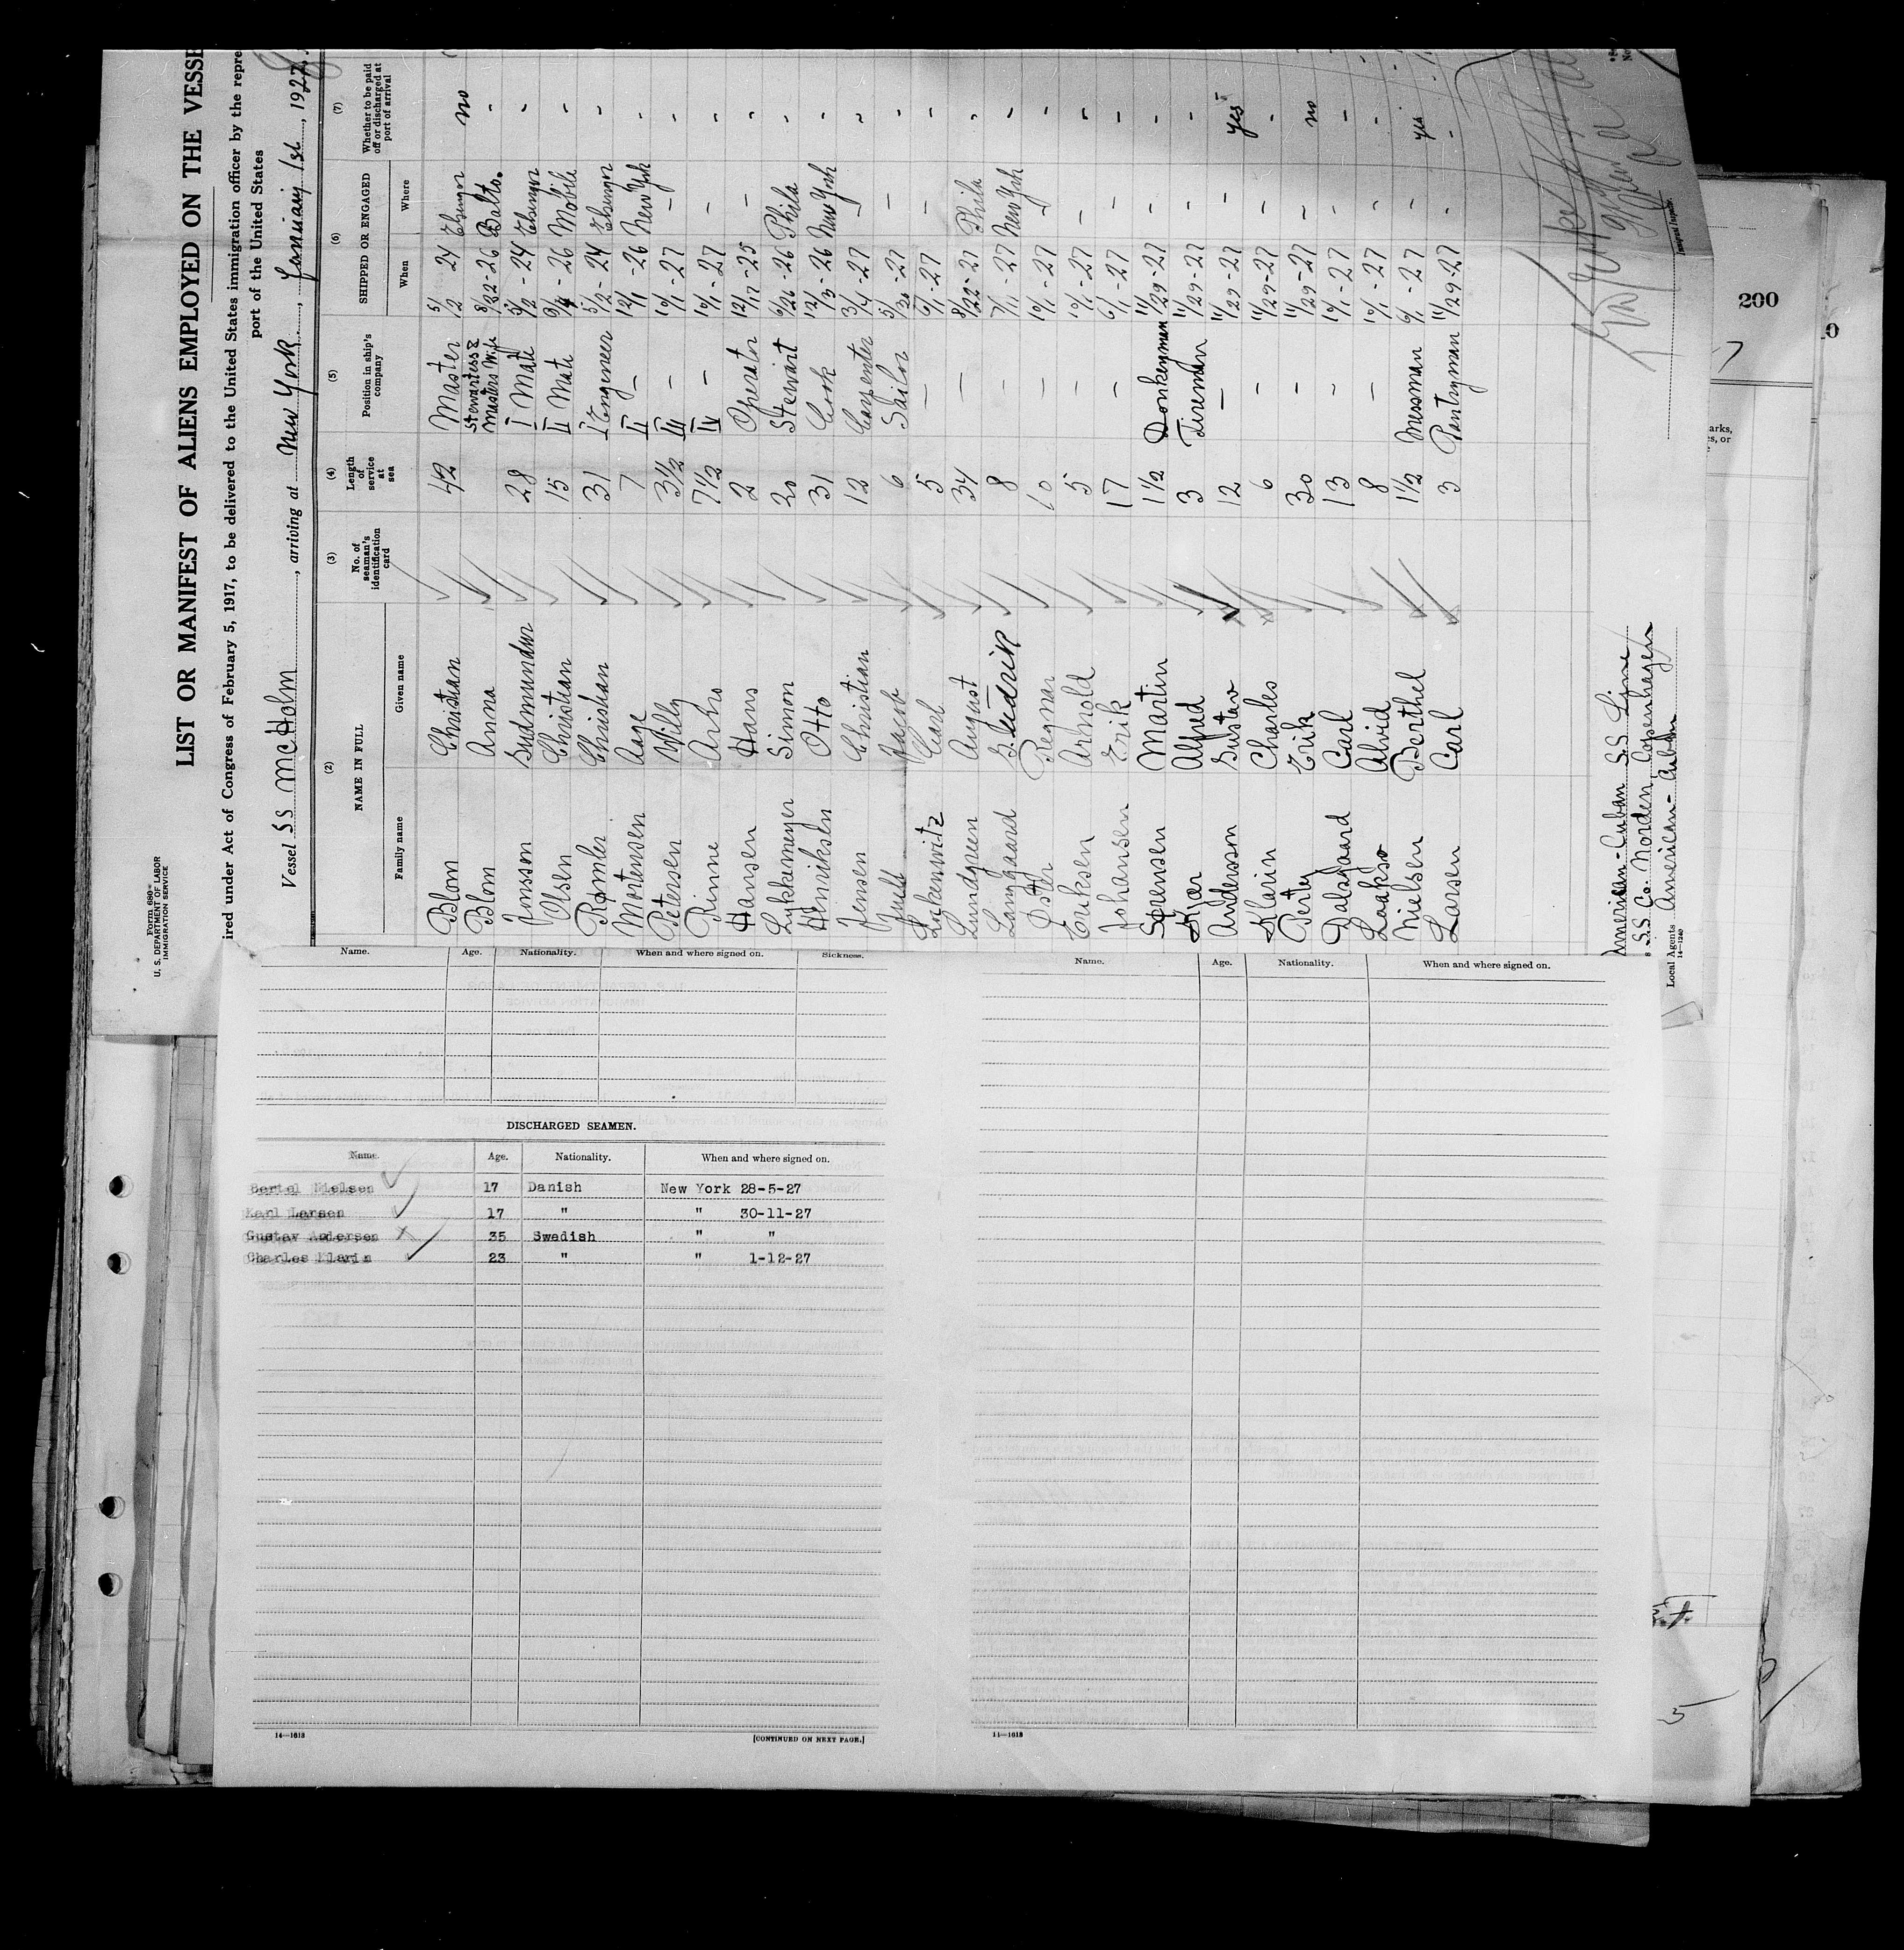 Form 680
U. S. DEPARTMENT OF LABOR
IMMIGRATION SERVICE
LIST OR MANIFEST OF ALIENS EMPLOYED ON THE VESSE
ired under Act of Congress of February 5, 1917, to be delivered to the United States immigration officer by the repre
port of the United States
Vessel SS McHolm, arriving at New York, January 1st, 192
(2) (3) (4) (5) (6) (7)
NAME IN FULL No. of seaman's identification card Length of service at sea Position in ship's company SHIPPED OR ENGAGED Whether to be paid off or discharged at port of arrival
Family name Given name When Where
Blom Christian 42 Master 5/2 24 no
Blom Anna Stewardess & Masters Wife 8/22-26 Balto. -
Jonsson Gudmundur 28 I Mate 5/2-24 -
Olsen Christian 15 II Mate 9/4-26 Mobile -
Rømler Christian 31 I Engineer 5/2-24 -
Mortensen Aage 7 II - 12/1-26 New York -
Petersen Willy 3 1/2 III - 10/1-27 - -
Rinne Arno 7 1/2 IV - 10/1-27 - -
Hansen Hans 2 Operator 12/17-25 - -
Lykkemeyer Simon 20 Stewart 6/26-26 Phila -
Henriksen Otto 31 Cook 12/13-26 New York -
Jensen Christian 12 Carpenter 3/14-27 - -
Juull Jacob 6 Sailor 5/20-27 - -
Lickenwitz Carl 5 - 6/1-27 - -
Lundgreen August 34 - 8/22-27 Phila -
Langgaard S. Hedrik 8 - 7/11-27 New York -
Oster Regnar 10 - 10/1-27 - -
Eriksen Arnold 5 - 10/1-27 - -
Johansen Erik 17 - 6/1-27 - -
Sørensen Martin 1 1/2 Donkeyman 11/29-27 - -
Kjær Alfred 3 Fireman 11/29-27 - -
Andersson Gustav 12 - 11/29-27 - yes
Klarin Charles 6 - 11/29-27 - -
Perty Erik 30 - 11/29-27 - no
Dalsgaard Carl 13 - 10/1-27 - -
Laakso Alvid 8 - 10/1-27 - -
Nielsen Berthel 1 1/2 Messman 6/1-27 - yes
Larsen Carl 3 Pantryman 11/29-27 - -
American-Cuban S.S. Line
S.S. Co. Norden, Copenhagen
Local Agents American-Cuban
14-1240
Immigrant Inspector.
200
arks,
es, or
Name. Age. Nationality. When and where signed on. Sickness.
DISCHARGED SEAMEN.
Name. Age. Nationality. When and where signed on.
Bertel Nielsen 17 Danish New York 28-5-27
Karl Larsen 17 " " 30-11-27
Gustav Andersen 35 Swedish " "
Charles Klarin 23 " " 1-12-27
14-1618
[CONTINUED ON NEXT PAGE.]
Name. Age. Nationality. When and where signed on.
11-1618
5